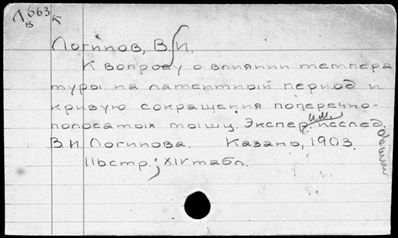 Л663 К
В
Логинов, В. И.
К вопросу о влиянии темпера
туры на латентный период и
кривую сокращения поперечно-
полосатых мышц. Экспер. им. исслед.
В. И. Логинова. Казань, 1903.
116 стр.; XIV табл.